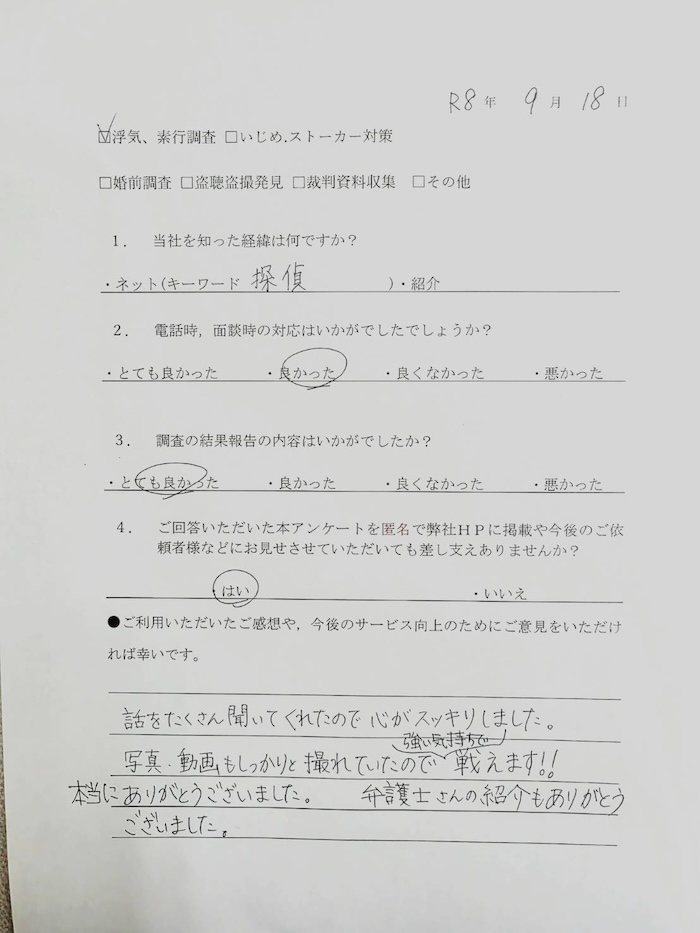 R8年 9月 18日
☑浮気、素行調査 □いじめ.ストーカー対策
□婚前調査 □盗聴盗撮発見 □裁判資料収集 □その他
１． 当社を知った経緯は何ですか？
・ネット(キーワード 探偵 )・紹介
２． 電話時，面談時の対応はいかがでしたでしょうか？
・とても良かった ・良かった ・良くなかった ・悪かった
３． 調査の結果報告の内容はいかがでしたか？
・とても良かった ・良かった ・良くなかった ・悪かった
４． ご回答いただいた本アンケートを匿名で弊社ＨＰに掲載や今後のご依
頼者様などにお見せさせていただいても差し支えありませんか？
・はい ・いいえ
●ご利用いただいたご感想や，今後のサービス向上のためにご意見をいただけ
れば幸いです。
話をたくさん聞いてくれたので心がスッキリしました。
写真・動画もしっかりと撮れていたので強い気持ちで戦えます!!
本当にありがとうございました。 弁護士さんの紹介もありがとう
ございました。